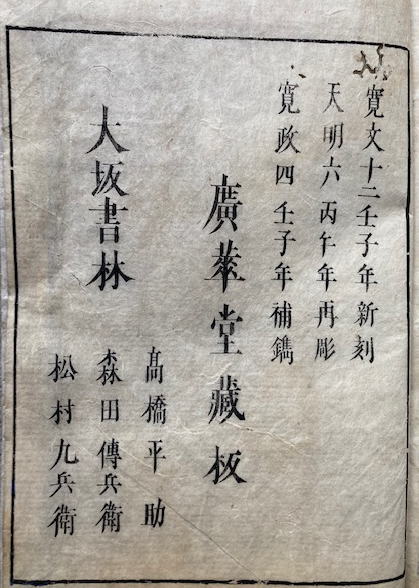 寛文十二壬子年新刻
天明六丙午年再彫
寛政四壬子年補鐫
廣華堂藏板
大坂書林
髙橋平助
森田傳兵衛
松村九兵衛